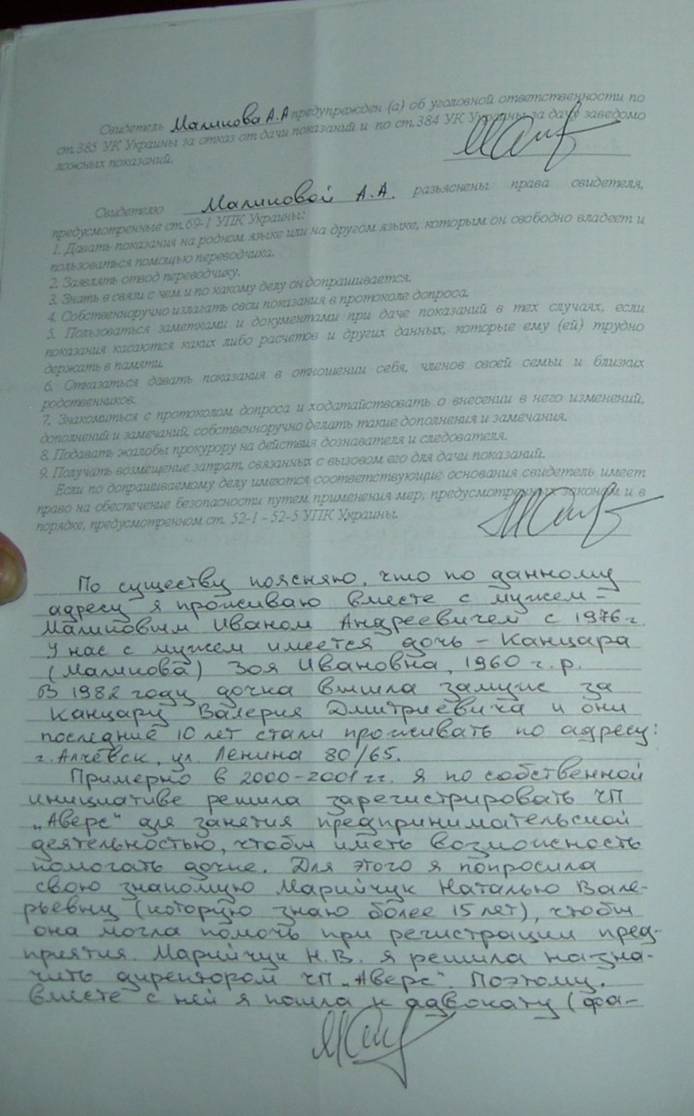 Свидетель Маликова А.А предупрежден (а) об уголовной ответственности по
ст.385 УК Украины за отказ от дачи показаний и по ст.384 УК Украины за дачу заведомо
ложных показаний.
Свидетелю Маликовой А.А. разъяснены права свидетеля,
предусмотренные ст.69-1 УПК Украины:
1. Давать показания на родном языке или на другом языке, которым он свободно владеет и
пользоваться помощью переводчика.
2. Заявлять отвод переводчику.
3. Знать в связи с чем и по какому делу он допрашивается.
4. Собственноручно излагать свои показания в протоколе допроса.
5. Пользоваться заметками и документами при даче показаний в тех случаях, если
показания касаются каких либо расчетов и других данных, которые ему (ей) трудно
держать в памяти.
6. Отказаться давать показания в отношении себя, членов своей семьи и близких
родственников.
7. Знакомиться с протоколом допроса и ходатайствовать о внесении в него изменений,
дополнений и замечаний, собственноручно делать такие дополнения и замечания.
8. Подавать жалобы прокурору на действия дознавателя и следователя.
9. Получать возмещение затрат, связанных с вызовом его для дачи показаний.
Если по допрашиваемому делу имеются соответствующие основания свидетель имеет
право на обеспечение безопасности путем применения мер, предусмотренных законом и в
порядке, предусмотренном ст. 52-1 - 52-5 УПК Украины.
По существу поясняю, что по данному
адресу я проживаю вместе с мужем -
Маликовым Иваном Андреевичем с 1976 г.
У нас с мужем имеется дочь - Канцара
(Маликова) Зоя Ивановна, 1960 г.р.
В 1982 году дочка вышла замуж за
Канцару Валерия Дмитриевича и они
последние 10 лет стали проживать по адресу:
г. Алчевск, ул. Ленина 80/65.
Примерно в 2000-2001 гг. я по собственной
инициативе решила зарегистрировать ЧП
„Аверс" для занятия предпринимательской
деятельностью, чтобы иметь возможность
помогать дочке. Для этого я попросила
свою знакомую Марийчук Наталью Вале-
рьевну (которую знаю более 15 лет), чтобы
она могла помочь при регистрации пред-
приятия. Марийчук Н.В. я решила назна-
чить директором ЧП „Аверс". Поэтому
вместе с ней я пошла к адвокату (фа-